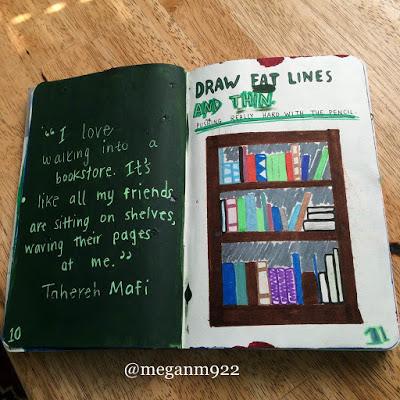 “I love
walking into a
bookstore. It's
like all my friends
are sitting on shelves,
waving their pages
at me.”
Tahereh Mafi
10
DRAW FAT LINES
AND THIN.
PUSHING REALLY HARD WITH THE PENCIL.
11
@meganm922